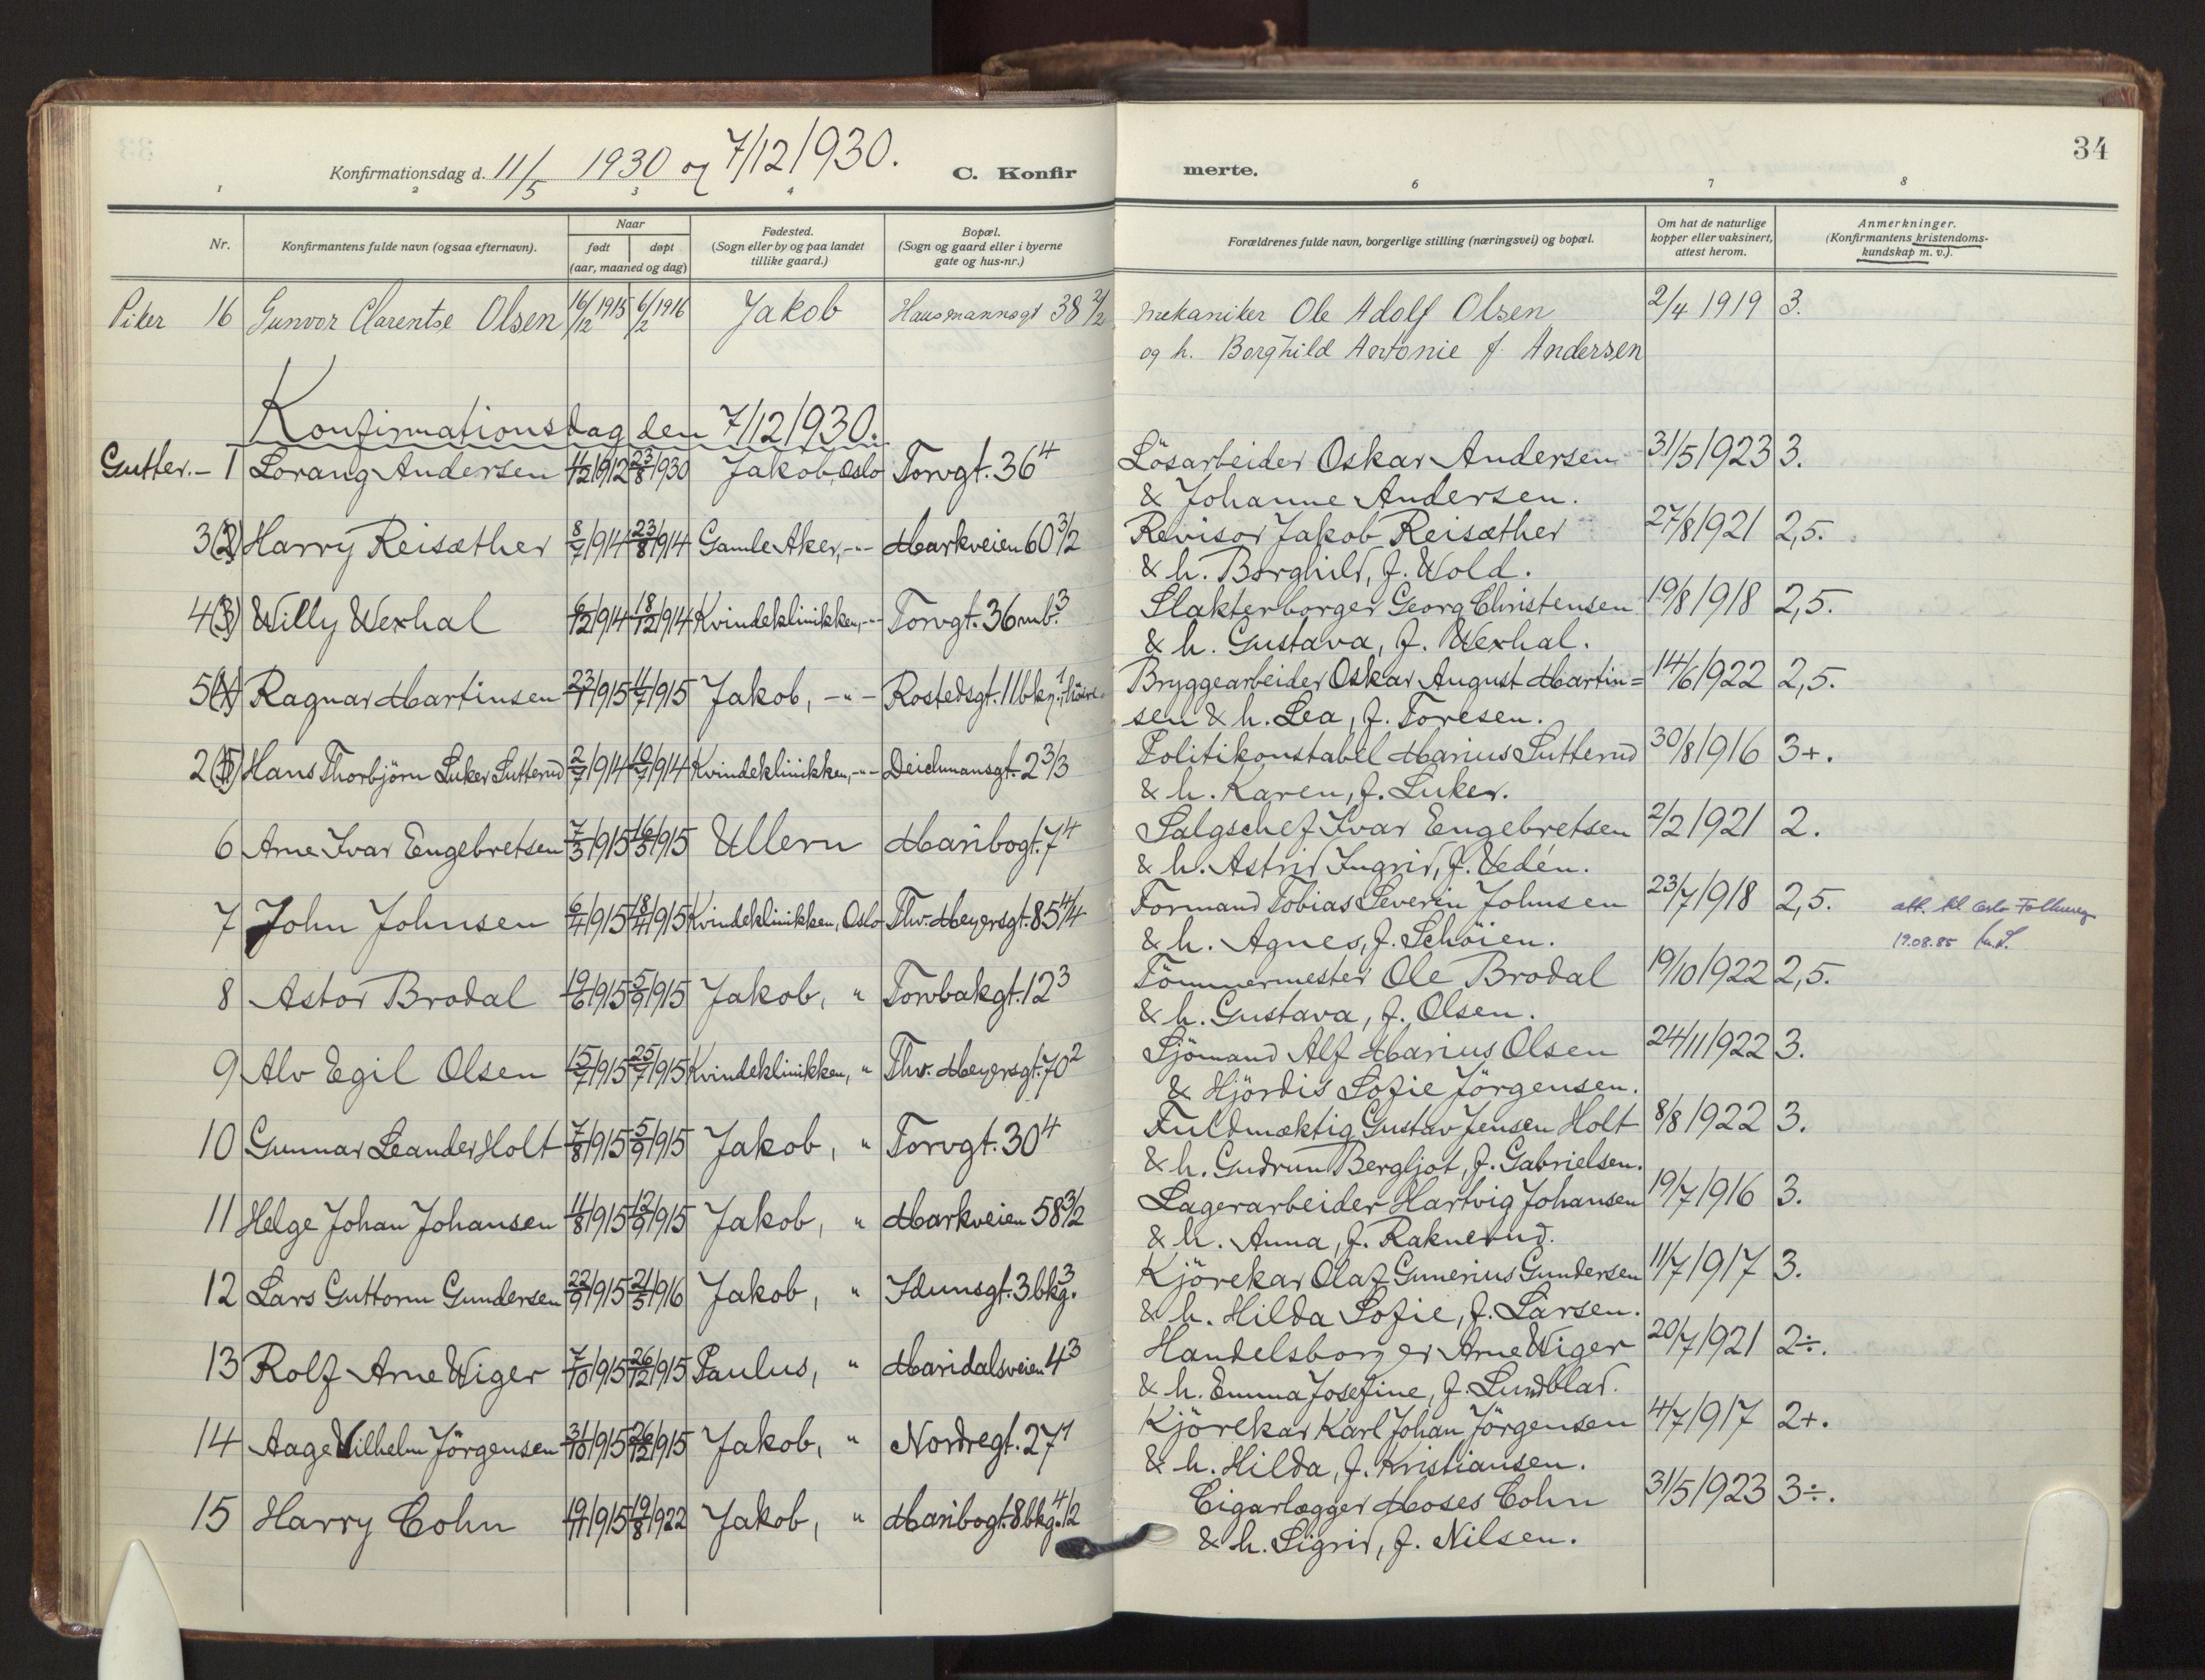 34
Konfirmationsdag d. 11/5 1930 og 7/12 1930. C. Konfirmerte.
1 2 3 4 6 7 8
Nr. Konfirmantens fulde navn (ogsaa efternavn). Naar født døpt (aar, maaned og dag) Fødested. (Sogn eller by og paa landet tillike gaard.) Bopæl. (Sogn og gaard eller i byerne gate og hus-nr.) Forældrenes fulde navn, borgerlige stilling (næringsvei) og bopæl. Om hat de naturlige kopper eller vaksinert, attest herom. Anmerkninger. (Konfirmantens kristendomskundskap m. v.).
Piker 16 Gunvor Clarentse Olsen 16/12 1915 6/2 1916 Jakob Hausmannsgt 38 2/2 Mekaniker Ole Adolf Olsen 2/4 1919 3.
og h. Borghild Antonie f. Andersen
Konfirmationsdag den 7/12 1930.
Gutter. - 1 Lorang Andersen 1912 23/8 1930 Jakob, Oslo Torvgt. 36 4 Lösarbeider Oskar Andersen 31/5 1923 3.
& Johanne Andersen.
3 (2) Harry Reisæther 8/7 1914 23/8 1914 Gamle Aker, -"- Markveien 60 3/2 Revisor Jakob Reisæther 27/8 1921 2,5.
& h. Borghild, f. Wold.
4 (3) Willy Wexhal 6/12 1914 18/12 1914 Kvindeklinikken, -"- Torvgt. 36 mb. 3 Slakterborger Georg Christensen 19/8 1918 2,5.
& h. Gustava, f. Wexhal.
5 (4) Ragnar Martinsen 23/1 1915 1915 Jakob, -"- Rostedsgt. 11 bkg. 1 Bryggearbeider Oskar August Martin= 14/6 1922 2,5.
sen & h. Lea, f. Toresen.
2 (5) Hans Thorbjörn Luker Sutterud 2/7 1914 10/7 1914 Kvindeklinikken, -"- Deichmansgt. 2 3/3 Politikonstabel Marius Sutterud 30/8 1916 3+.
& h. Karen, f. Luker.
6 Arne Ivar Engebretsen 7/3 1915 16/5 1915 Ullern Maribogt. 7 4 Salgschef Ivar Engebretsen 2/2 1921 2.
& h. Astrid Ingrid, f. Vedén.
7 John Johnsen 6/4 1915 18/4 1915 Kvindeklinikken, Oslo Thv. Meyersgt. 85 4/4 Formand Tobias Severin Johnsen 23/7 1918 2,5. att. til Oslo Folkereg
& h. Agnes, f. Schöien. 19.08.85
8 Astor Brodal 19/6 1915 5/9 1915 Jakob, " Torvbakgt. 12 3 Tömmermester Ole Brodal 19/10 1922 2,5.
& h. Gustava, f. Olsen.
9 Alv Egil Olsen 15/7 1915 25/7 1915 Kvindeklinikken, " Thv. Meyersgt. 70 2 Sjömand Alf Marius Olsen 24/11 1922 3.
& Hjördis Sofie Jörgensen.
10 Gunnar Leander Holt 7/8 1915 5/9 1915 Jakob, " Torvgt. 30 4 Fuldmæktig Gustav Jensen Holt 8/8 1922 3.
& h. Gudrun Bergljot, f. Gabrielsen.
11 Helge Johan Johansen 11/8 1915 12/9 1915 Jakob, " Markveien 58 3/2 Lagerarbeider Hartvig Johansen 19/7 1916 3.
& h. Anna, f. Raknerud.
12 Lars Guttorm Gundersen 22/9 1915 21/5 1916 Jakob, " Idunsgt. 3 bkg. 3 Kjörekar Olaf Gunerius Gundersen 11/7 1917 3.
& h. Hilda Sofie, f. Larsen.
13 Rolf Arne Wiger 7/10 1915 26/12 1915 Paulus, " Maridalsveien 4 3 Handelsborger Arne Wiger 20/7 1921 2÷.
& h. Emma Josefine, f. Lundblad.
14 Aage Vilhelm Jörgensen 31/10 1915 26/12 1915 Jakob, " Nordregt. 27 1 Kjörekar Karl Johan Jörgensen 4/7 1917 2+.
& h. Hilda, f. Kristiansen.
15 Harry Cohn 19/11 1915 19/8 1922 Jakob, " Maribogt. 8 bkg. 4/2 Cigarlægger Moses Cohn 31/5 1923 3÷.
& h. Sigrid, f. Nilsen.